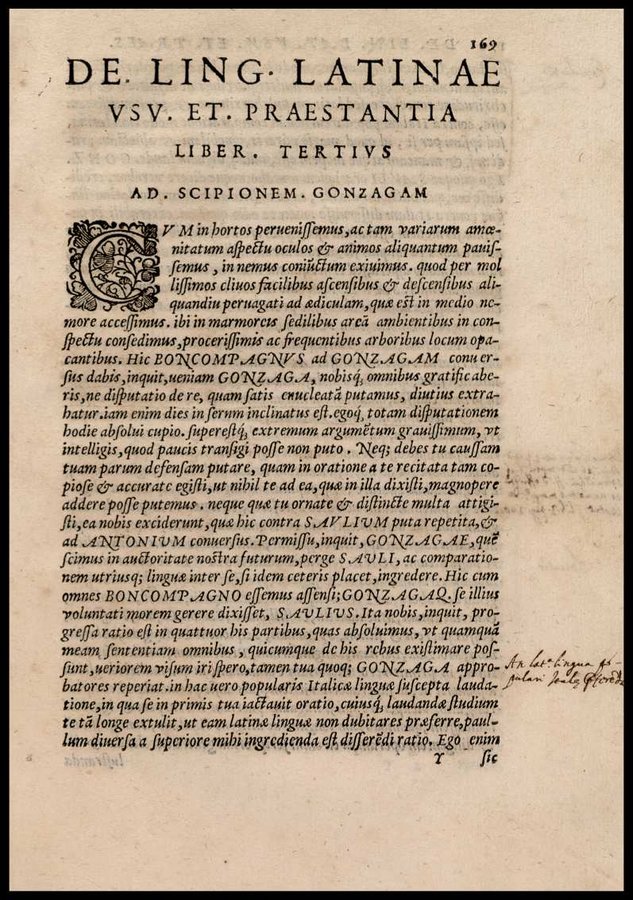 169
DE. LING. LATINAE
VSV. ET. PRAESTANTIA
LIBER. TERTIVS
AD. SCIPIONEM. GONZAGAM
CVM in hortos peruenissemus, ac tam variarum amœ-
nitatum aspectu oculos & animos aliquantum pauis-
semus, in nemus coniũctum exiuimus. quod per mol
lissimos cliuos facilibus ascensibus & descensibus ali-
quandiu peruagati ad ædiculam, quæ est in medio ne-
more accessimus. ibi in marmoreis sedilibus areã ambientibus in con-
spectu consedimus, procerissimis ac frequentibus arboribus locum opa-
cantibus. Hic BONCOMPAGNVS ad GONZAGAM conuer-
sus dabis, inquit, ueniam GONZAGA, nobisq́; omnibus gratificabe-
ris, ne disputatio de re, quam satis enucleatã putamus, diutius extra-
hatur. iam enim dies in serum inclinatus est. egoq́; totam disputationem
hodie absolui cupio. superestq́; extremum argumẽtum grauissimum, vt
intelligis, quod paucis transigi posse non puto. Neq; debes tu caussam
tuam parum defensam putare, quam in oratione a te recitata tam co-
piose & accurate egisti, ut nihil te ad ea, quæ in illa dixisti, magnopere
addere posse putemus. neque quæ tu ornate & distincte multa attigi-
sti, ea nobis exciderunt, quæ hic contra SAVLIVM puta repetita, &
ad ANTONIVM conuersus. Permissu, inquit, GONZAGAE, quẽ
scimus in auctoritate nostra futurum, perge SAVLI, ac comparatio-
nem utriusq; linguæ inter se, si idem ceteris placet, ingredere. Hic cum
omnes BONCOMPAGNO essemus assensi; GONZAGAQ. se illius
voluntati morem gerere dixisset, SAVLIVS. Ita nobis, inquit, pro-
gressa ratio est in quattuor his partibus, quas absoluimus, vt quamquã
meam sententiam omnibus, quicumque de his rebus existimare pos-
sunt, ueriorem visum iri spero, tamen tua quoq; GONZAGA appro-
batores reperiat. in hac uero popularis Italicæ linguæ suscepta lauda-
tione, in qua se in primis tua iactauit oratio, cuiusq́; laudandæ studium
te tã longe extulit, ut eam latinæ linguæ non dubitares præferre, paul-
lum diuersa a superiore mihi ingredienda est disserẽdi ratio. Ego enim
Y sic
An lat. lingua po-
pulari